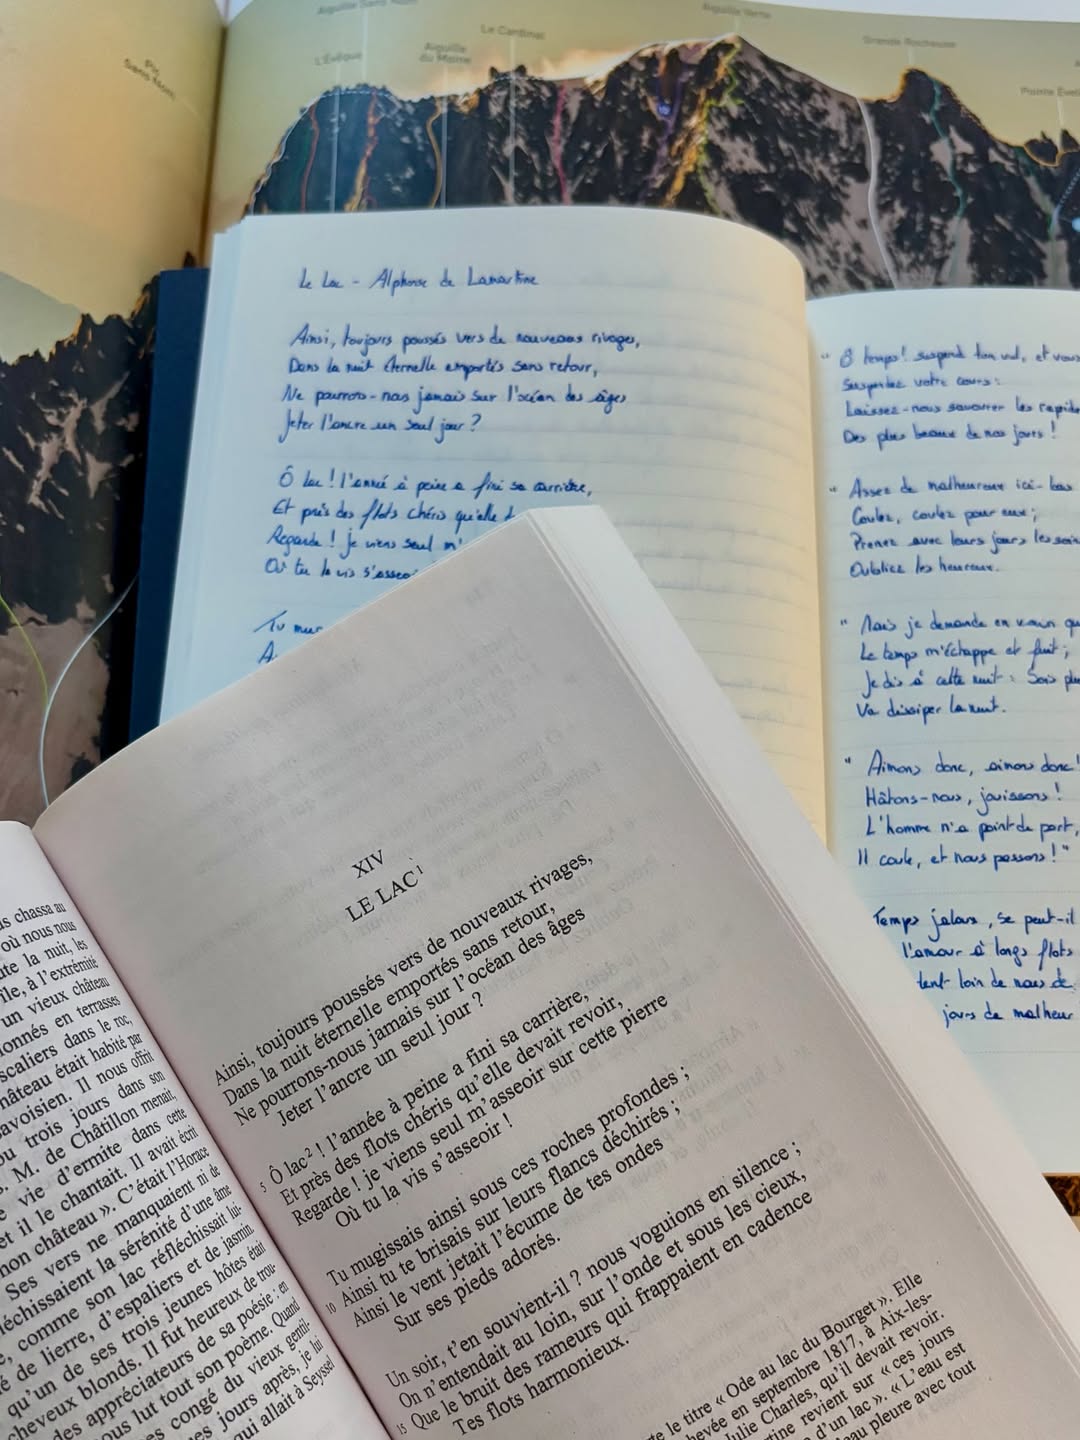 Aiguille Sans Nom
Aiguille Verte
Le Cardinal
Grande Rocheuse
Aiguille
du Moine
L'Evêque
Pic
Sans Nom
Pointe
Le Lac - Alphonse de Lamartine
Ainsi, toujours poussés vers de nouveaux rivages,
Dans la nuit éternelle emportés sans retour,
Ne pourrons-nous jamais sur l'océan des âges
Jeter l'ancre un seul jour ?
Ô lac ! l'année à peine a fini sa carrière,
Et près des flots chéris qu'elle d
Regarde ! je viens seul m'
Où tu la vis s'asseoi
Tu mu
A
" Ô temps ! suspend ton vol, et vous
Suspendez votre cours :
Laissez-nous savourer les rapide
Des plus beaux de nos jours !
" Assez de malheureux ici-bas
Coulez, coulez pour eux ;
Prenez avec leurs jours les soin
Oubliez les heureux.
" Mais je demande en vain qu
Le temps m'échappe et fuit ;
Je dis à cette nuit : Sois plu
Va dissiper la nuit.
" Aimons donc, aimons donc !
Hâtons-nous, jouissons !
L'homme n'a point de port,
Il coule, et nous passons ! "
Temps jaloux, se peut-il
l'amour à longs flots
lent loin de nous de
jours de malheur
s chassa au
où nous nous
ute la nuit, les
île, à l'extrémité
un vieux château
onnés en terrasses
scaliers dans le roc,
hâteau était habité par
avoisien. Il nous offrit
ou trois jours dans son
. M. de Châtillon menait,
e vie d'ermite dans cette
et il le chantait. Il avait écrit
non château ». C'était l'Horace
Ses vers ne manquaient ni de
léchissaient la sérénité d'une âme
, comme son lac réfléchissait lui-
de lierre, d'espaliers et de jasmin.
qu'un de ses trois jeunes hôtes était
cheveux blonds. Il fut heureux de trou-
des appréciateurs de sa poésie : en
ous lut tout son poème. Quand
congé du vieux gentil-
ues jours après, je lui
qui allait à Seyssel
XIV
LE LAC1
Ainsi, toujours poussés vers de nouveaux rivages,
Dans la nuit éternelle emportés sans retour,
Ne pourrons-nous jamais sur l'océan des âges
Jeter l'ancre un seul jour ?
5 Ô lac2 ! l'année à peine a fini sa carrière,
Et près des flots chéris qu'elle devait revoir,
Regarde ! je viens seul m'asseoir sur cette pierre
Où tu la vis s'asseoir !
Tu mugissais ainsi sous ces roches profondes ;
10 Ainsi tu te brisais sur leurs flancs déchirés ;
Ainsi le vent jetait l'écume de tes ondes
Sur ses pieds adorés.
Un soir, t'en souvient-il ? nous voguions en silence ;
On n'entendait au loin, sur l'onde et sous les cieux,
15 Que le bruit des rameurs qui frappaient en cadence
Tes flots harmonieux.
te le titre « Ode au lac du Bourget ». Elle
hevée en septembre 1817, à Aix-les-
Julie Charles, qu'il devait revoir.
rtine revient sur « ces jours
d'un lac ». « L'eau est
eau pleure avec tout